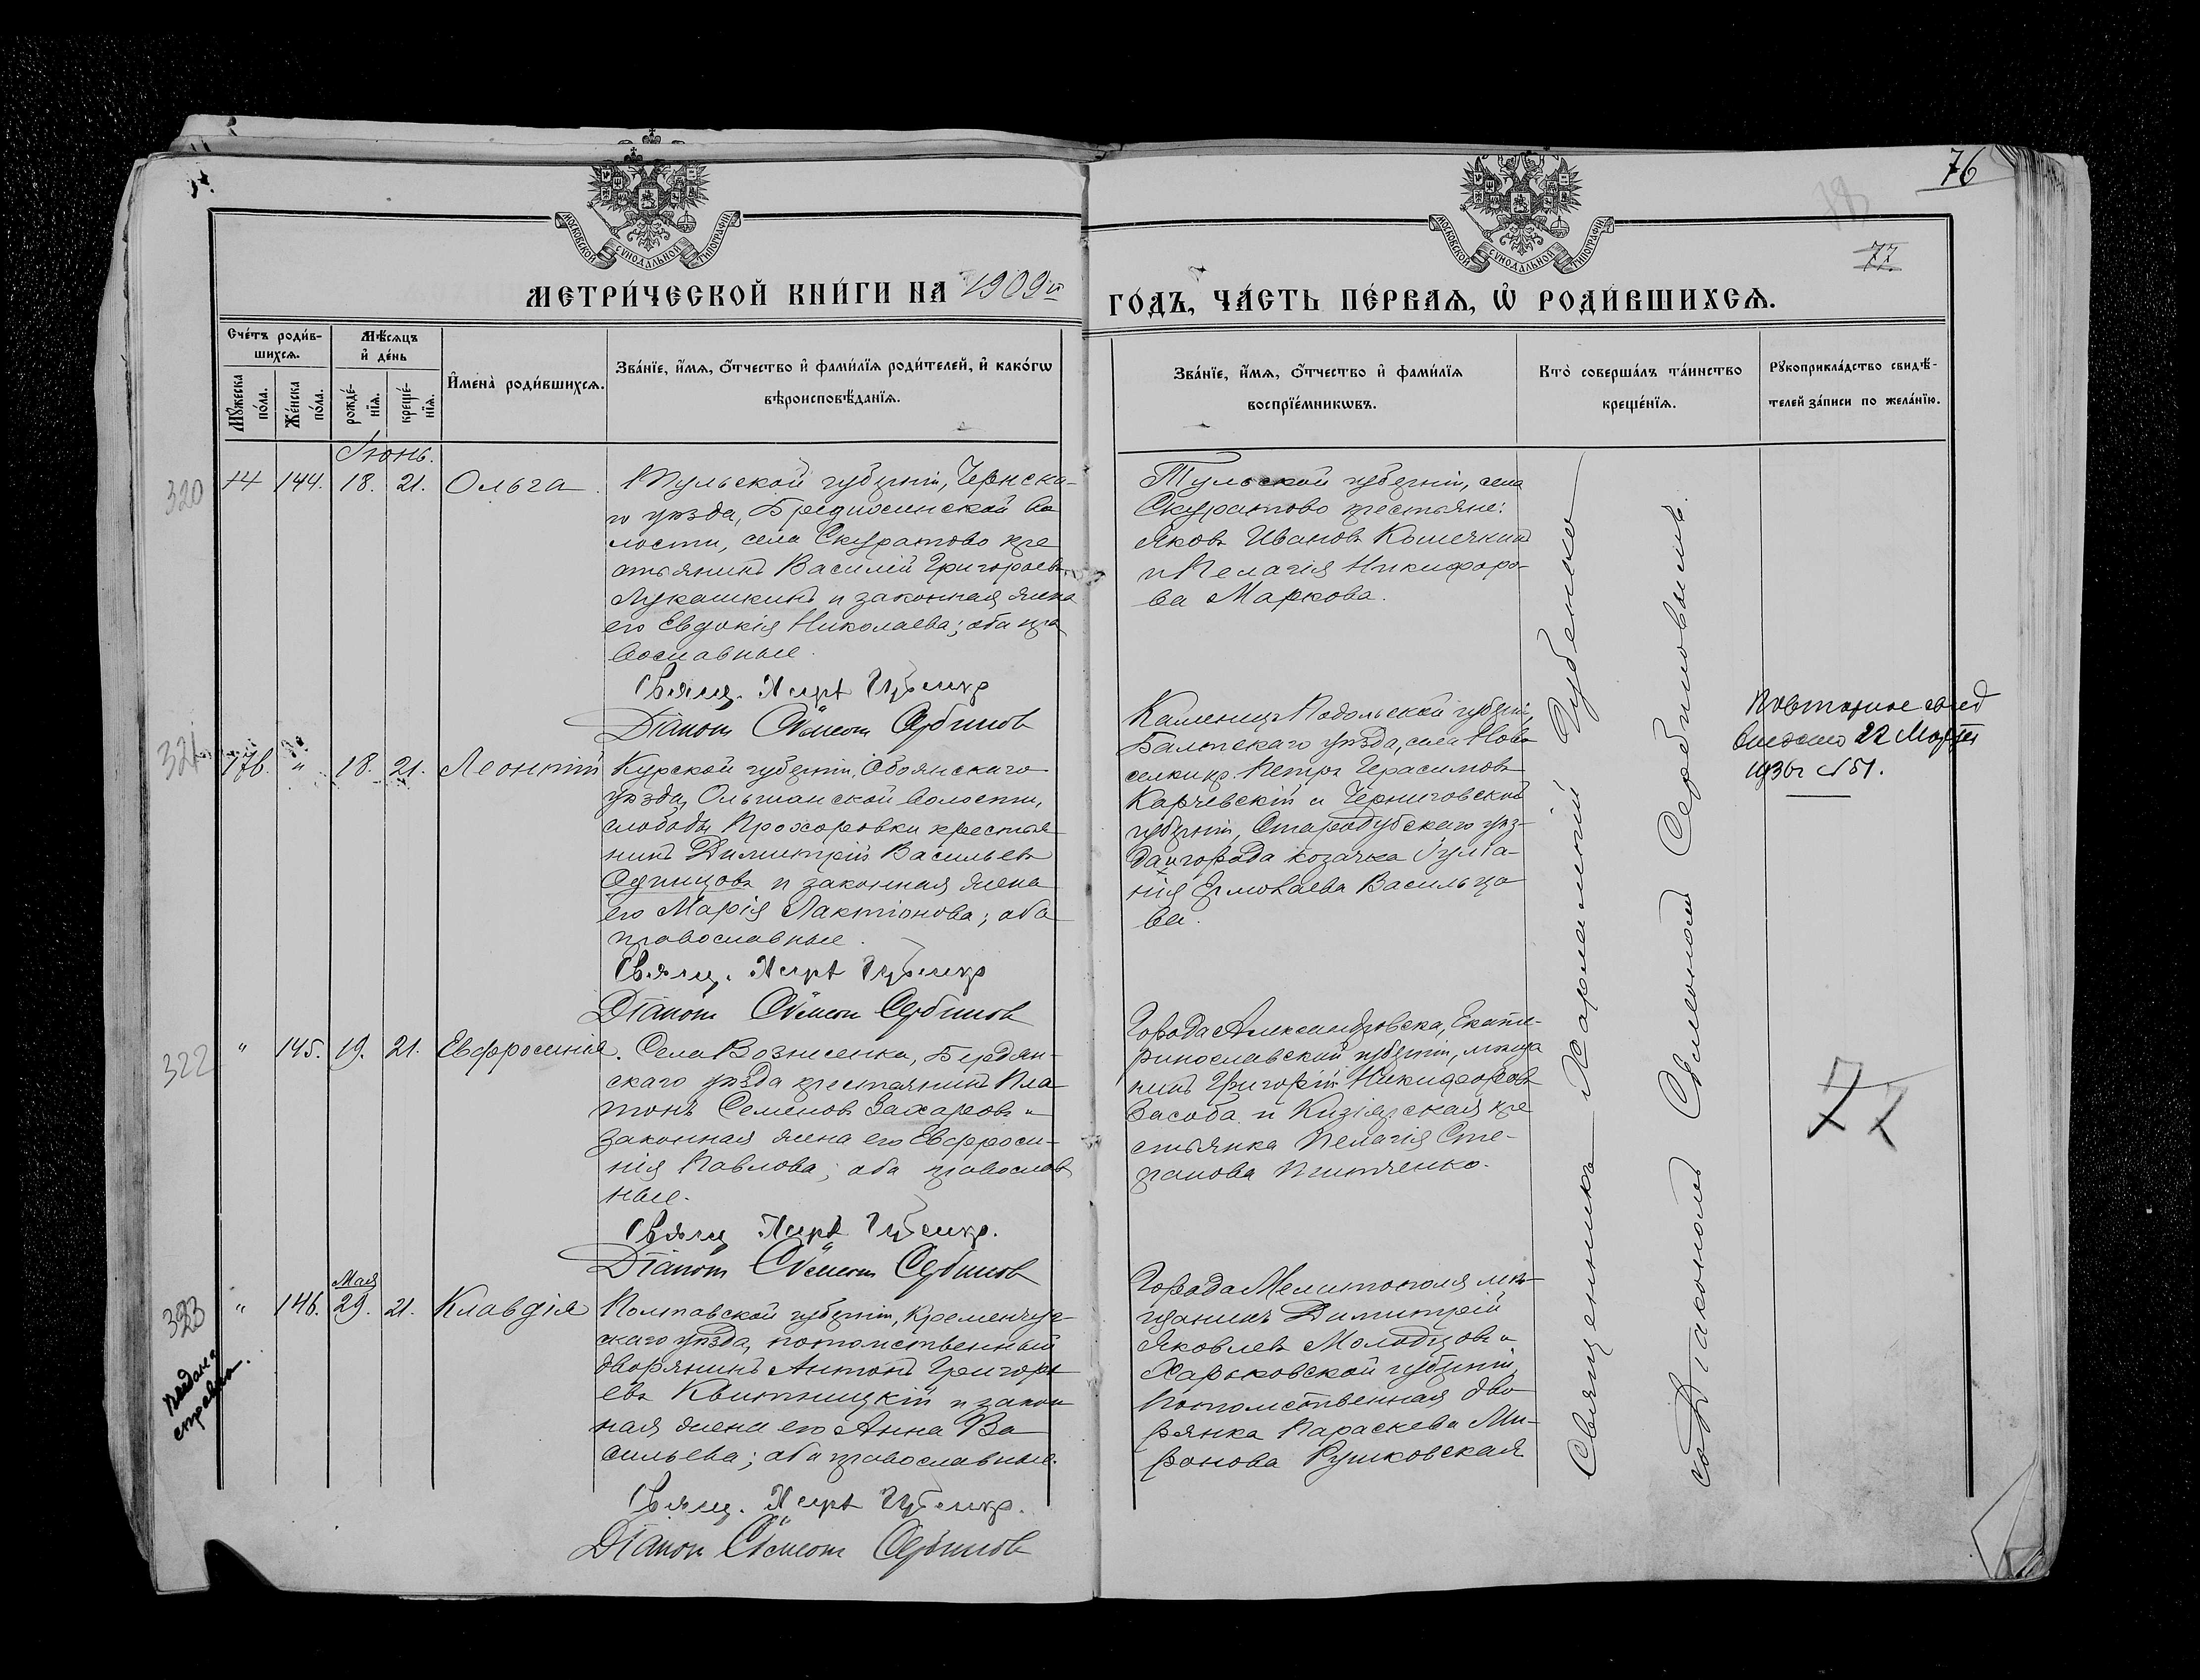 76
77
МОСКОВСКОЙ СѴНОДАЛЬНОЙ ТИПОГРАФІИ
МОСКОВСКОЙ СѴНОДАЛЬНОЙ ТИПОГРАФІИ
МЕТРИ́ЧЕСКОЙ КНИ́ГИ НА 1909й
ГО́ДЪ, ЧА́СТЬ ПЕ́РВАѦ, Ѡ҆ РОДИ́ВШИХСѦ.
Сче́тъ роди́в-
шихсѧ.
Мꙋ́жеска по́ла.
Же́нска по́ла.
Мѣ́сѧцъ
и҆ де́нь
рожде́-
нїѧ.
креще́-
нїѧ.
И҆мена̀ роди́вшихсѧ.
Зва́нїе, и҆́мѧ, ѻ҆́тчество и҆ фами́лїѧ роди́телей, и҆ како́гѡ
вѣроисповѣ́данїѧ.
Зва́нїе, и҆́мѧ, ѻ҆́тчество и҆ фами́лїѧ
воспрїе́мникѡвъ.
Кто̀ соверша́лъ та́инство
креще́нїѧ.
Рꙋкоприкла́дство свидѣ́-
телей за́писи по жела́нїю.
Іюнь.
320
144. 18. 21. Ольга
Тульской губерніи, Чернска-
го уѣзда,
лости, села Скуратово кре
стьянинъ Василій Григорьевъ
Лукашкинъ и законная жена
его Евдокія Николаева; оба пра
вославные.
Свящ. Харл. Губенко
Діаконъ Сѵмеонъ Сербиновъ
Тульской губерніи, села
Скуратово крестьяне:
Яковъ Ивановъ
и Пелагія Никифоро-
ва Маркова.
321
176. " 18. 21. Леонтій
Курской губерніи, Обоянскаго
уѣзда, Ольшанской волости,
слободы Прохоровки крестья-
нинъ Димитрій Васильевъ
Одинцовъ и законная жена
его Марія Лактіонова; оба
православные.
Свящ. Харл. Губенко
Діаконъ Сѵмеонъ Сербиновъ
Каменец Подольской губерніи,
Балтскаго уѣзда, села Ново
селки кр. Петръ Герасимовъ
Карчевскій и Черниговской
губерніи, Стародубскаго уѣз-
да и города козачка Іулiа-
нія Ермолаева Васильцо
ва.
Повторное свид
выдано 22 Марта
1936г №51.
322
" 145. 19. 21. Евфросинія.
Села Вознесенка, Бердян-
скаго уѣзда крестьянинъ Пла
тонъ Семеновъ Захаровъ и
законная жена его Евфроси-
нія Павлова; оба православ
ные.
Свящ. Харл. Губенко.
Діаконъ Сѵмеонъ Сербиновъ
Города Александровска, Екате-
ринославской губерніи, мѣща
нинъ Григорій Никифоровъ
Засоба и Кизіярская кре
стьянка Пелагія Сте-
фанова
77
323
Мая
" 146. 29. 21. Клавдія
Полтавской губерніи, Кременчуг-
скаго уѣзда, потомственный
дворянинъ Антонъ Григорь
евъ Квитницкій и закон
ная жена его Анна Ва
сильева; оба православные.
Свящ. Харл. Губенко.
Діаконъ Сѵмеонъ Сербиновъ
Города Мелитополя мѣ-
щанинъ Димитрій
Яковлевъ Молодцовъ и
Харьковской губерніи,
потомственная дво
рянка Параскева Ми-
ронова Рушковская
Выдана
справка.
Священникъ Харлампій Губенко
съ Діакономъ Сѵмеономъ Сербиновымъ.